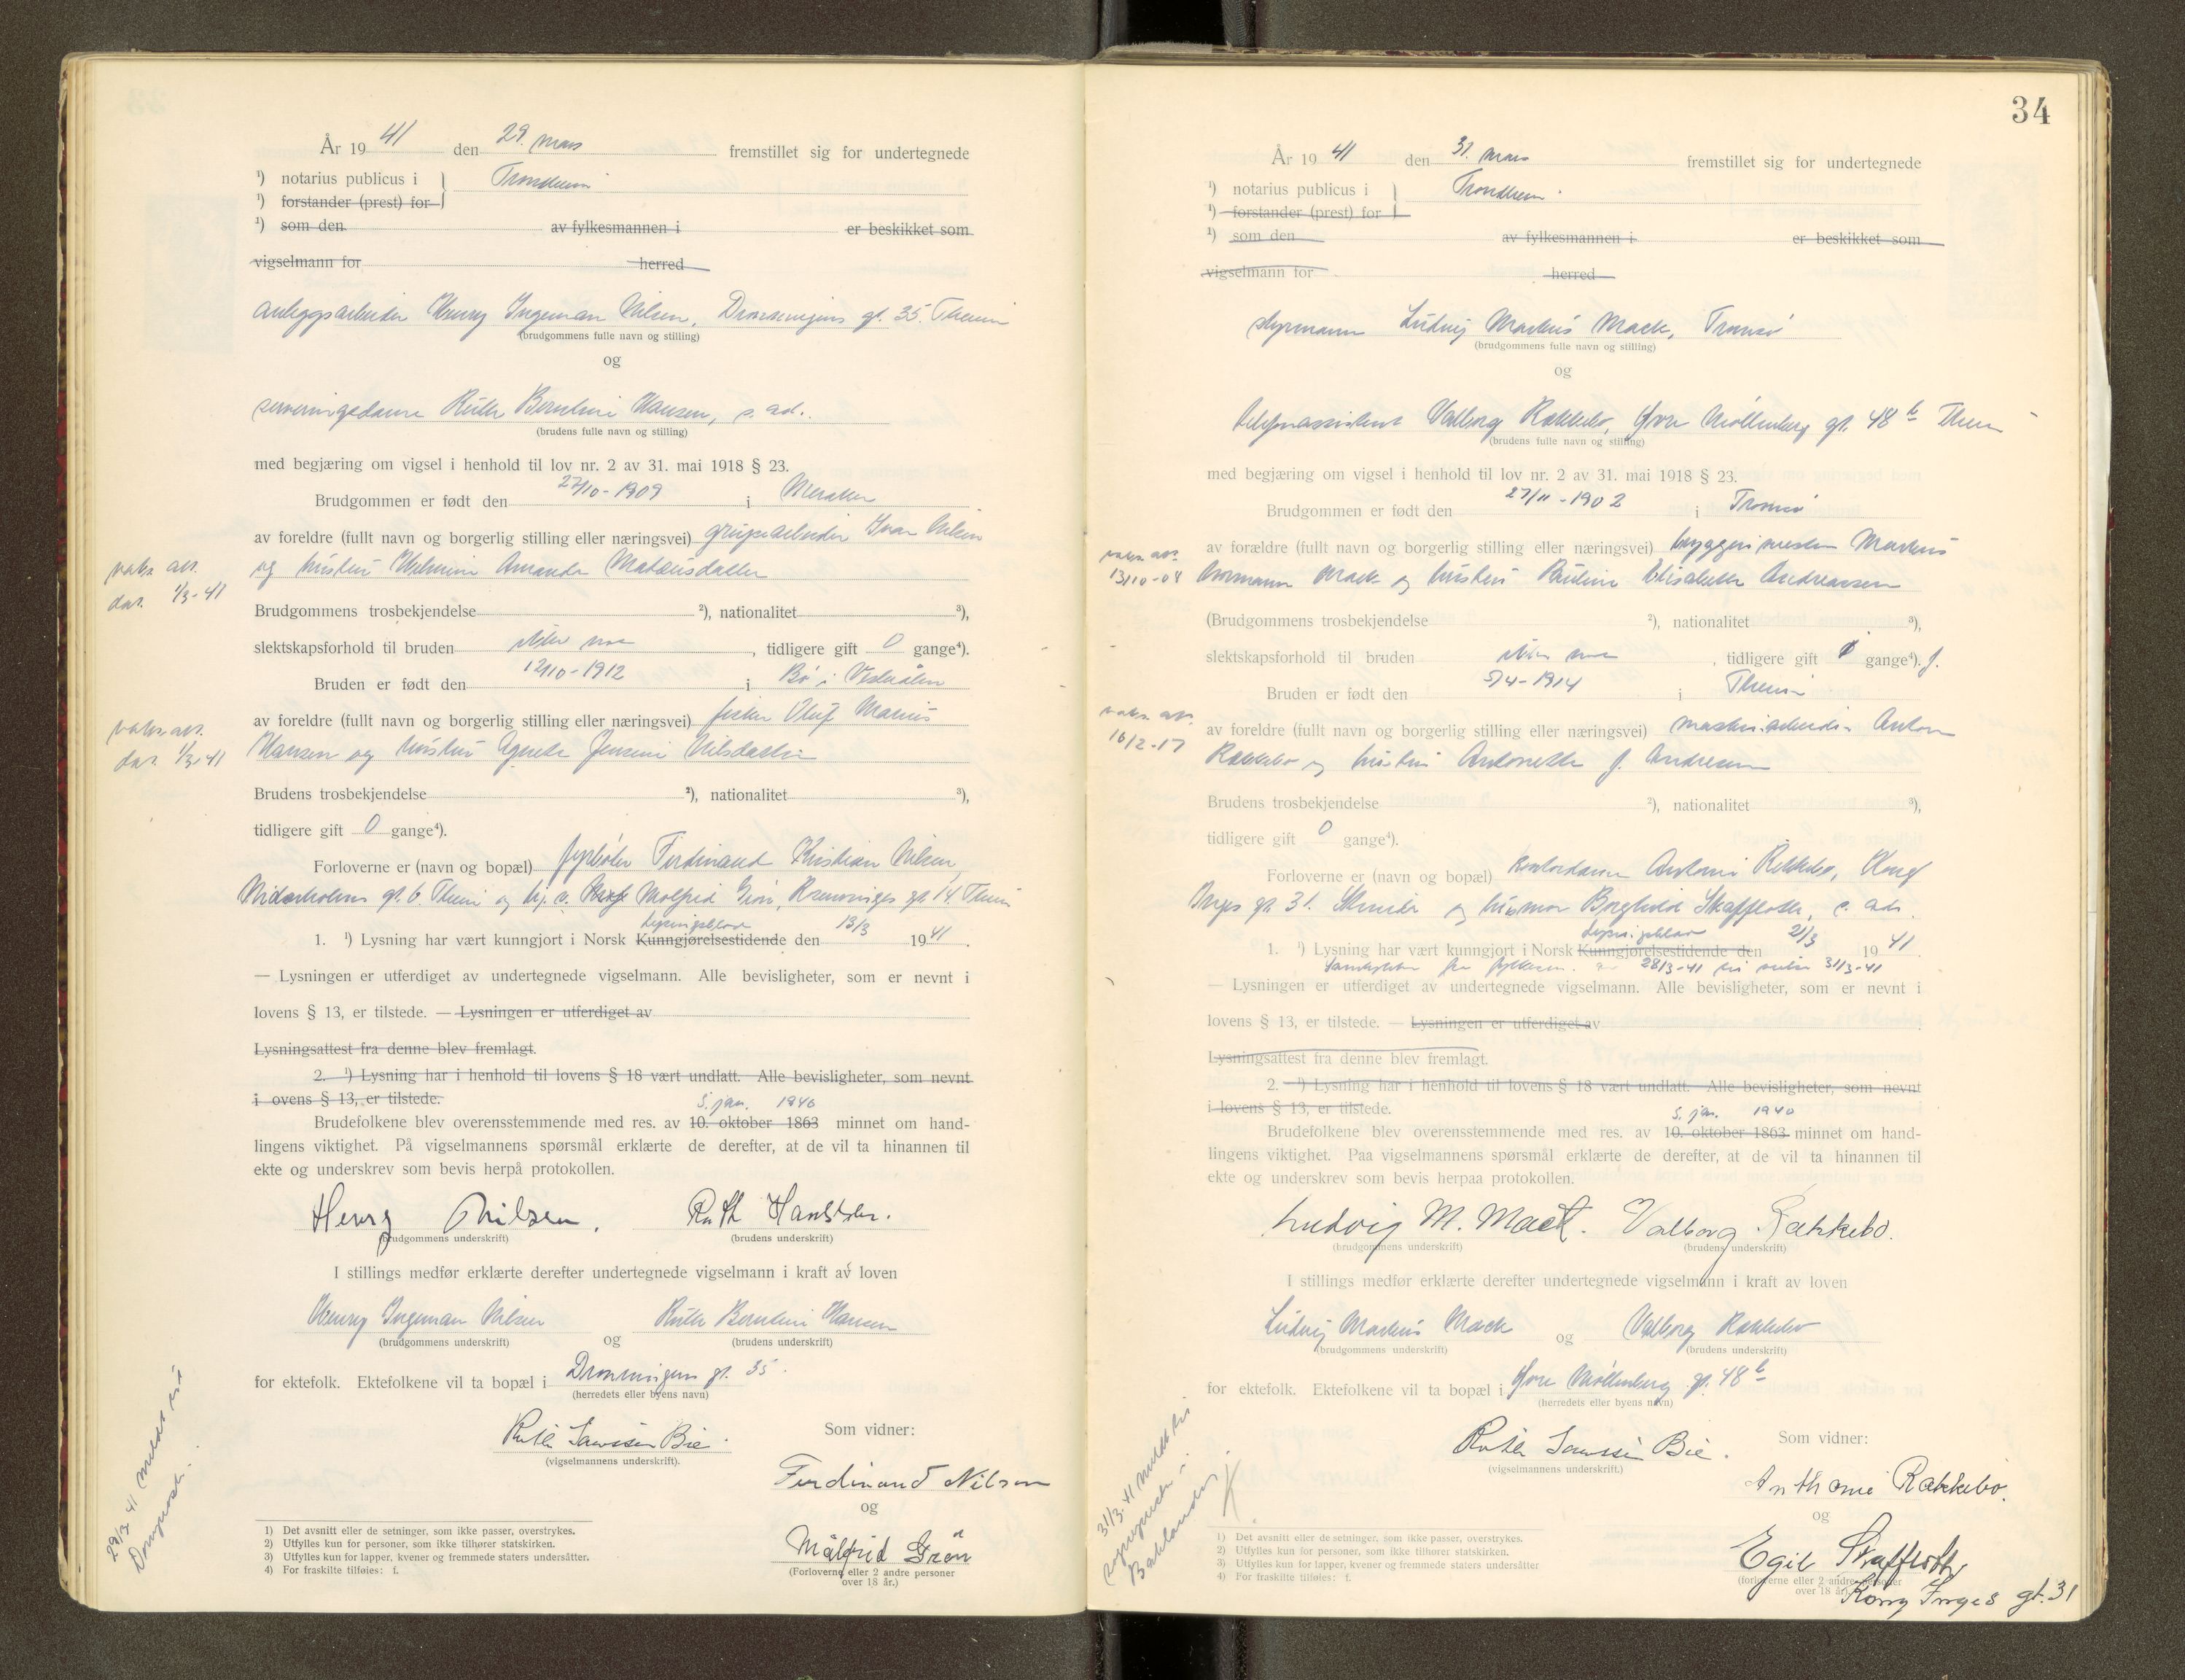 År 19 41 den 29. mars fremstillet sig for undertegnede
¹) notarius publicus i Trondheim
¹) forstander (prest) for
¹) som den av fylkesmannen i er beskikket som
vigselmann for herred
anleggsarbeider Henry Ingeman Nilsen, Dronningens gt. 35. Theim
(brudgommens fulle navn og stilling)
og
serveringsdame Ruth Berntine Hansen, s. ad.
(brudens fulle navn og stilling)
med begjæring om vigsel i henhold til lov nr. 2 av 31. mai 1918 § 23.
Brudgommen er født den 27/10-1909 i Meraker
av foreldre (fullt navn og borgerlig stilling eller næringsvei) grubearbeider Ivar Nilsen
og hustru Amanda
vaks. att.
dat. 1/3-41
Brudgommens trosbekjendelse ²), nationalitet ³),
slektskapsforhold til bruden tidligere gift 0 gange⁴).
Bruden er født den 12/10-1912 i Bø i Vesterålen
av foreldre (fullt navn og borgerlig stilling eller næringsvei) fisker Oluf Marius
Hansen og hustru Agnete Jensine Nilsdatter
vaks. att.
dat. 1/3-41
Brudens trosbekjendelse ²), nationalitet ³),
tidligere gift 0 gange⁴).
Forloverne er (navn og bopæl) fyrbøter Ferdinand Kristian Nilsen,
Nidarholms gt. 6. Theim og Målfrid Grøn, gt. 14. Theim
Lysningsblad 13/3
1. ¹) Lysning har vært kunngjort i Norsk Kunngjørelsestidende den 19 41.
— Lysningen er utferdiget av undertegnede vigselmann. Alle bevisligheter, som er nevnt i
lovens § 13, er tilstede. — Lysningen er utferdiget av
Lysningsattest fra denne blev fremlagt.
2. ¹) Lysning har i henhold til lovens § 18 vært undlatt. Alle bevisligheter, som nevnt
i ovens § 13, er tilstede.
5. jan. 1940
Brudefolkene blev overensstemmende med res. av 10. oktober 1863 minnet om hand-
lingens viktighet. På vigselmannens spørsmål erklærte de derefter, at de vil ta hinannen til
ekte og underskrev som bevis herpå protokollen.
Henry Nilsen. Ruth Hansen.
(brudgommens underskrift) (brudens underskrift)
I stillings medfør erklærte derefter undertegnede vigselmann i kraft av loven
Henry Ingeman Nilsen og Ruth Berntine Hansen
(brudgommens underskrift) (brudens underskrift)
for ektefolk. Ektefolkene vil ta bopæl i Dronningens gt. 35.
(herredets eller byens navn)
Ruth Bie.
(vigselmannens underskrift).
Som vidner:
Ferdinand Nilsen
og
Målfrid Grøn
(Forloverne eller 2 andre personer
over 18 år.)
29/3-41 meldt til
1) Det avsnitt eller de setninger, som ikke passer, overstrykes.
2) Utfylles kun for personer, som ikke tilhører statskirken.
3) Utfylles kun for lapper, kvener og fremmede staters undersåtter.
4) For fraskilte tilføies: f.
34
År 19 41 den 31. mars fremstillet sig for undertegnede
¹) notarius publicus i Trondheim
¹) forstander (prest) for
¹) som den av fylkesmannen i er beskikket som
vigselmann for herred
styrmann Ludvig Markus Mack, Tromsø
(brudgommens fulle navn og stilling)
og
telefonassistent Valborg Rakkebo, Øvre Møllenberg gt. 48 b Theim
(brudens fulle navn og stilling)
med begjæring om vigsel i henhold til lov nr. 2 av 31. mai 1918 § 23.
Brudgommen er født den 27/11-1902 i Tromsø
av forældre (fullt navn og borgerlig stilling eller næringsvei) bryggerimester Markus
vaks. att.
13/10-08
Mack og hustru Pauline Elisabeth Andreassen
(Brudgommens trosbekjendelse ²), nationalitet ³),
slektskapsforhold til bruden tidligere gift gange⁴). f.
Bruden er født den 5/4-1914 i Theim
av foreldre (fullt navn og borgerlig stilling eller næringsvei) maskinarbeider Anton
vaks. att.
16/2-17
Rakkebo og hustru Antonette J. Andresen
Brudens trosbekjendelse ²), nationalitet ³),
tidligere gift 0 gange⁴).
Forloverne er (navn og bopæl) kontordame Antonie Rakkebo, Kong
Inges gt. 31. Strinda og husmor Borghild Skafloth, s. ad.
Lysningsblad 21/3
1. ¹) Lysning har vært kunngjort i Norsk Kunngjørelsestidende den 19 41.
28/3-41 31/3-41
— Lysningen er utferdiget av undertegnede vigselmann. Alle bevisligheter, som er nevnt i
lovens § 13, er tilstede. — Lysningen er utferdiget av
Lysningsattest fra denne blev fremlagt.
2. ¹) Lysning har i henhold til lovens § 18 vært undlatt. Alle bevisligheter, som nevnt
i lovens § 13, er tilstede.
5. jan. 1940
Brudefolkene blev overensstemmende med res. av 10. oktober 1863 minnet om hand-
lingens viktighet. Paa vigselmannens spørsmål erklærte de derefter, at de vil ta hinannen til
ekte og underskrev som bevis herpaa protokollen.
Ludvig M. Mack. Valborg Rakkebo.
(brudgommens underskrift) (brudens underskrift)
I stillings medfør erklærte derefter undertegnede vigselmann i kraft av loven
Ludvig Markus Mack og Valborg Rakkebo
(brudgommens underskrift) (brudens underskrift)
for ektefolk. Ektefolkene vil ta bopæl i Øvre Møllenberg gt. 48 b
(herredets eller byens navn)
Ruth Bie.
(vigselmannens underskrift.)
Som vidner:
Anthonie Rakkebo.
og
Egil Skafloth
(forloverne eller 2 andre personer
over 18 år.)
Kong Inges gt. 31
31/3-41 meldt til
sogneprest i
Baklandet
1) Det avsnitt eller de setninger, som ikke passer, overstrykes.
2) Utfylles kun for personer, som ikke tilhører statskirken.
3) Utfylles kun for lapper, kvener og fremmede staters undersåtter
4) For fraskilte tilføies: f.